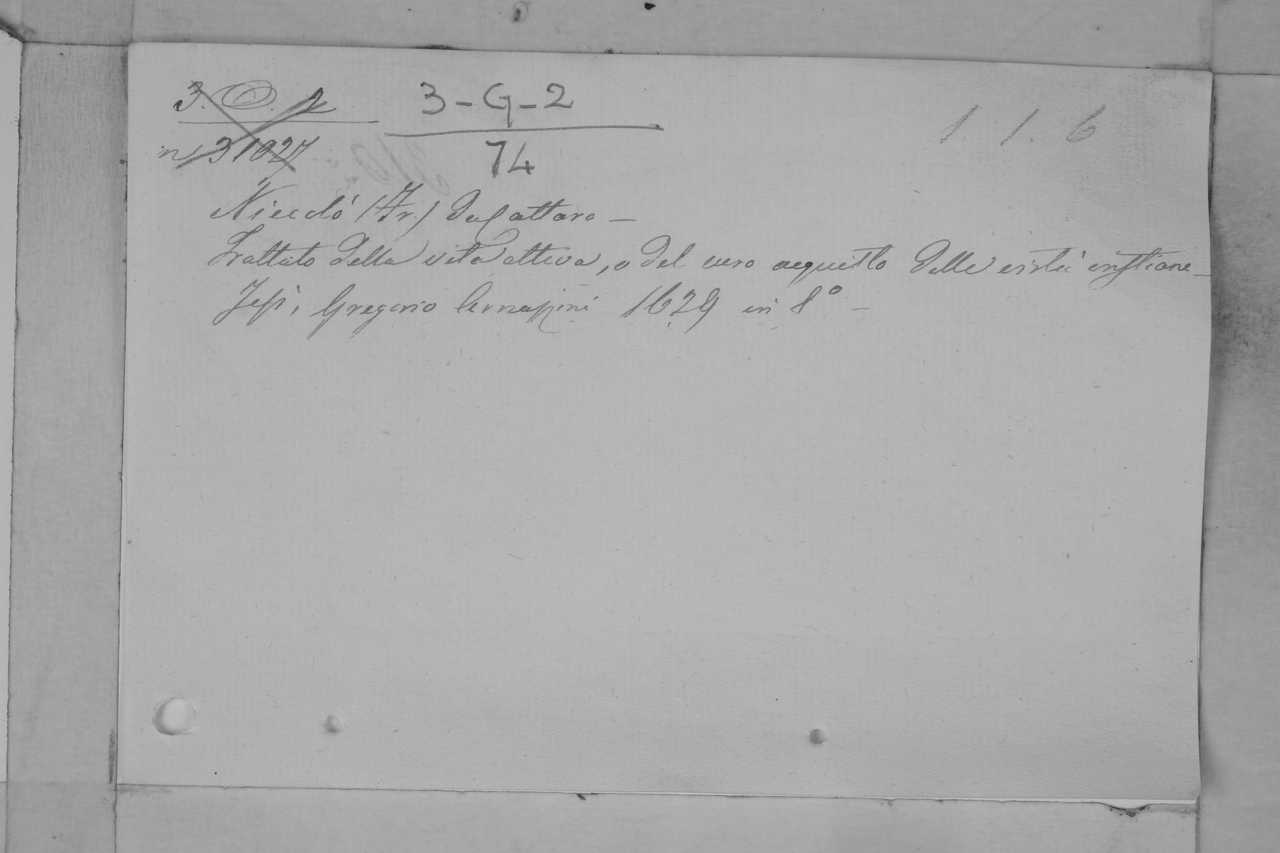 3. O. 2 3-G-2 1. 1. 6
n. 31027 74
Niccoló (Fr.) da Cattaro —
Trattato della vita attiva, o del vero acquisto delle virtú cristiane —
Jesi, Gregorio Arnazzini 1629 in 8º —